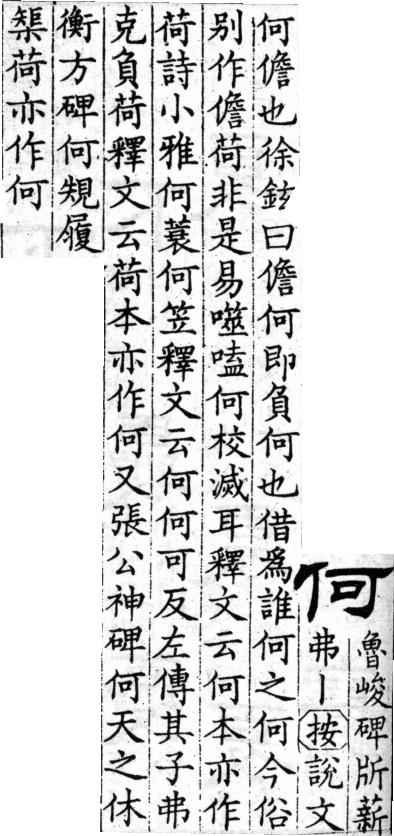 何
魯峻碑薪
弗丨按說文
何儋也徐鉉曰儋何即負何也借爲誰何之何今俗
別作儋荷非是易噬嗑何校滅耳釋文云何本亦作
荷詩小雅何蓑何笠釋文云何何可反左傳其子弗
克負荷釋文云荷本亦作何又張公神碑何天之休
衡方碑何䂓履
榘荷亦作何